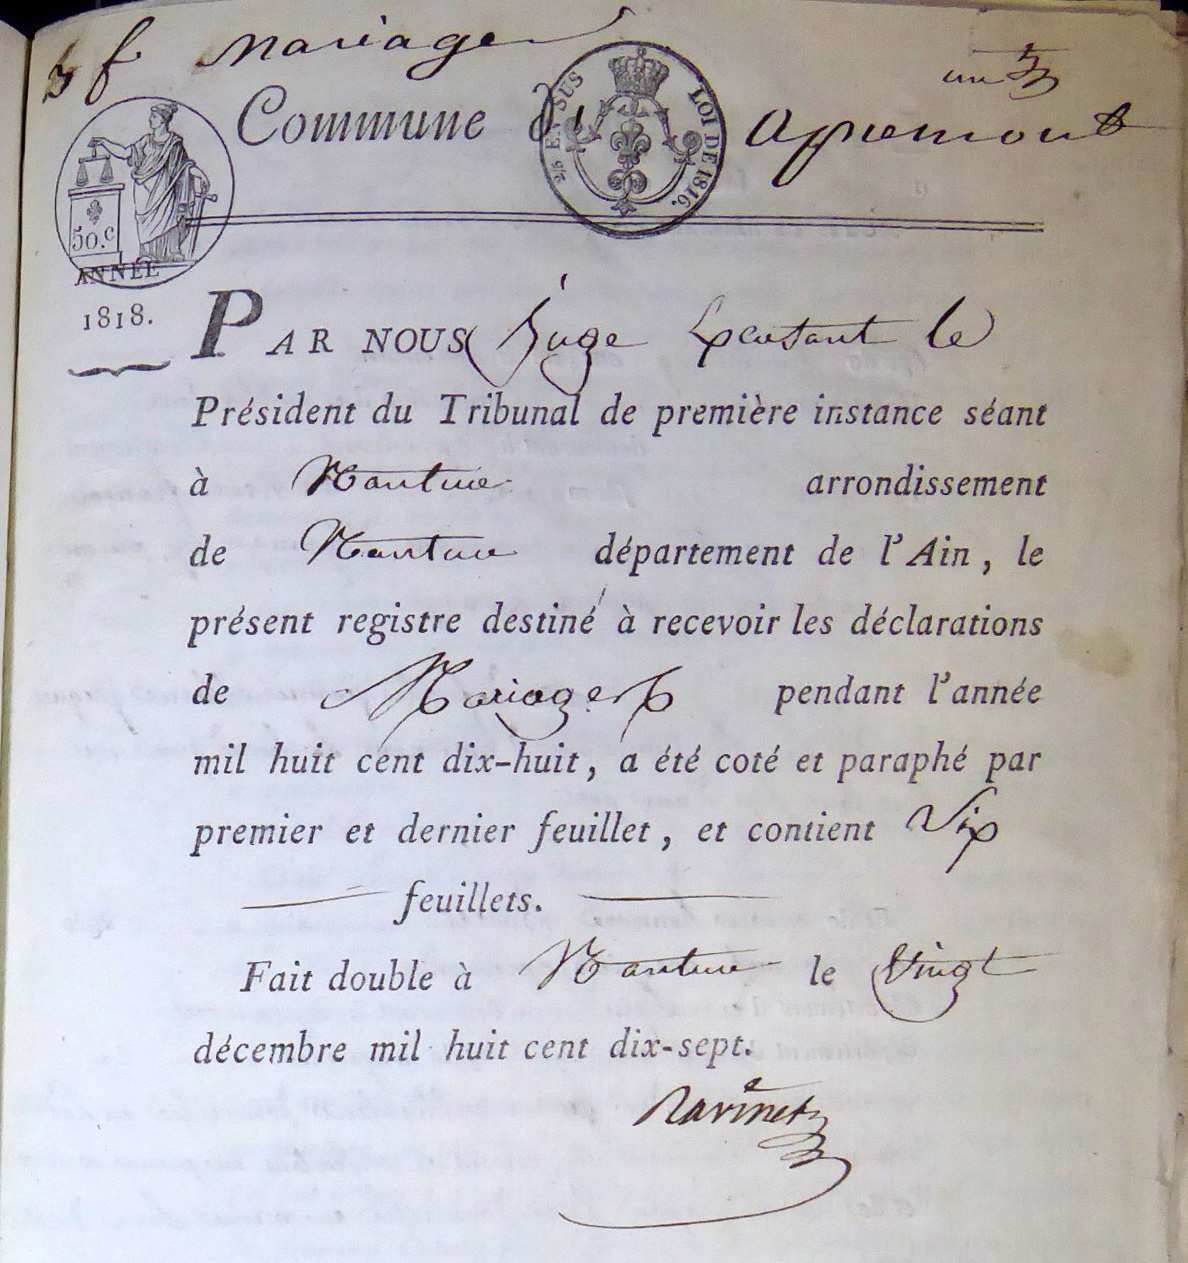 3 f mariages un
Commune d' apremont
2/5 EN SUS LOI DE 1816.
50.C
ANNÉE
1818.
PAR NOUS Juge faisant le
Président du Tribunal de première instance séant
à Nantua arrondissement
de Nantua département de l'Ain, le
présent registre destiné à recevoir les déclarations
de Mariages pendant l'année
mil huit cent dix-huit, a été coté et paraphé par
premier et dernier feuillet, et contient Six
feuillets.
Fait double à Nantua le Vingt
décembre mil huit cent dix-sept.
Ravinet